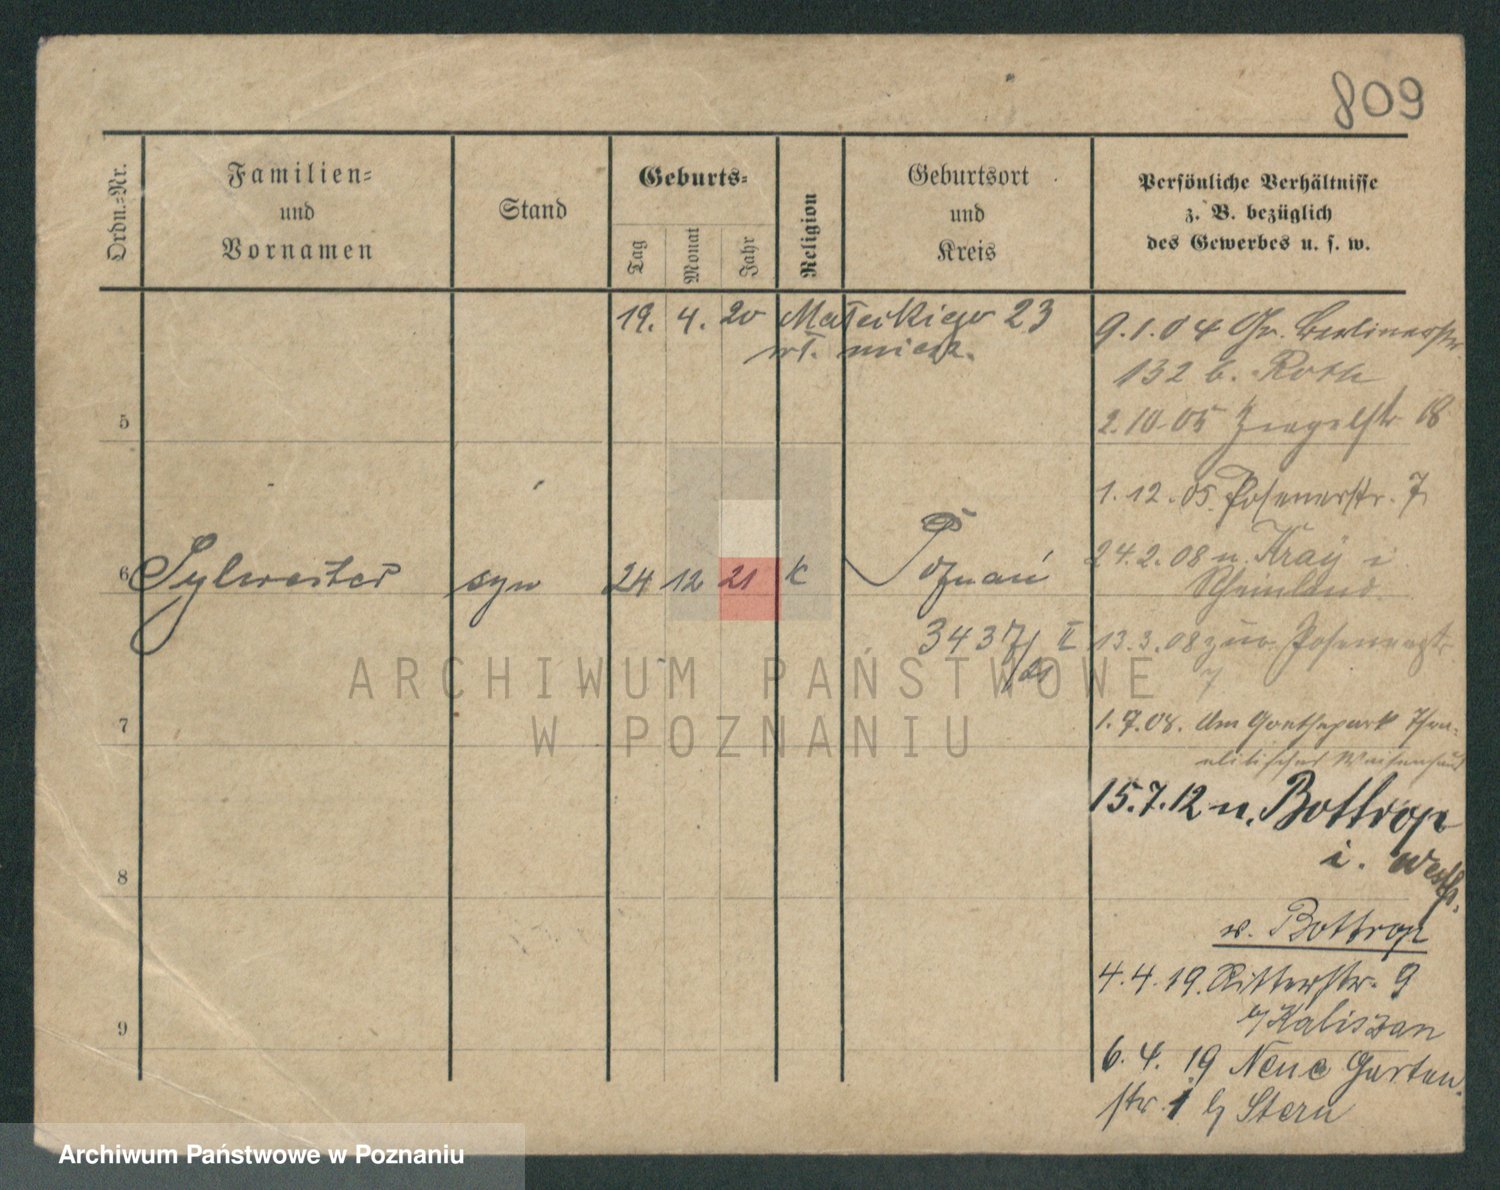 809
Ordn.-Nr.
Familien-
und
Vornamen
Stand
Geburts-
Tag
Monat
Jahr
Religion
Geburtsort
und
Kreis
Persönliche Verhältnisse
z. B. bezüglich
des Gewerbes u. s. w.
19. 4. 20 Mateckiego 23
wł. miesz.
9.1.04 Gr. Berlinerstr.
132 b. Roth
2.10.05 Ziegelstr 18
1.12.05. Posenerstr. 7
24.2.08 n. Kray i
Rheinland.
13.3.08 zur. Posenerstr.
7
1.7.08. Am Goethepark Isra-
elitisches Waisenhaus
15.7.12 n. Bottrop
i. Westf.
v. Bottrop
4.4.19. Ritterstr. 9
b/ Kaliszan
6.4.19 Neue Garten-
str. 1 b/ Stern
5
6 Sylwester syn 24 12 21 k Poznań
3437/21 II
7
8
9
ARCHIWUM PAŃSTWOWE
W POZNANIU
Archiwum Państwowe w Poznaniu